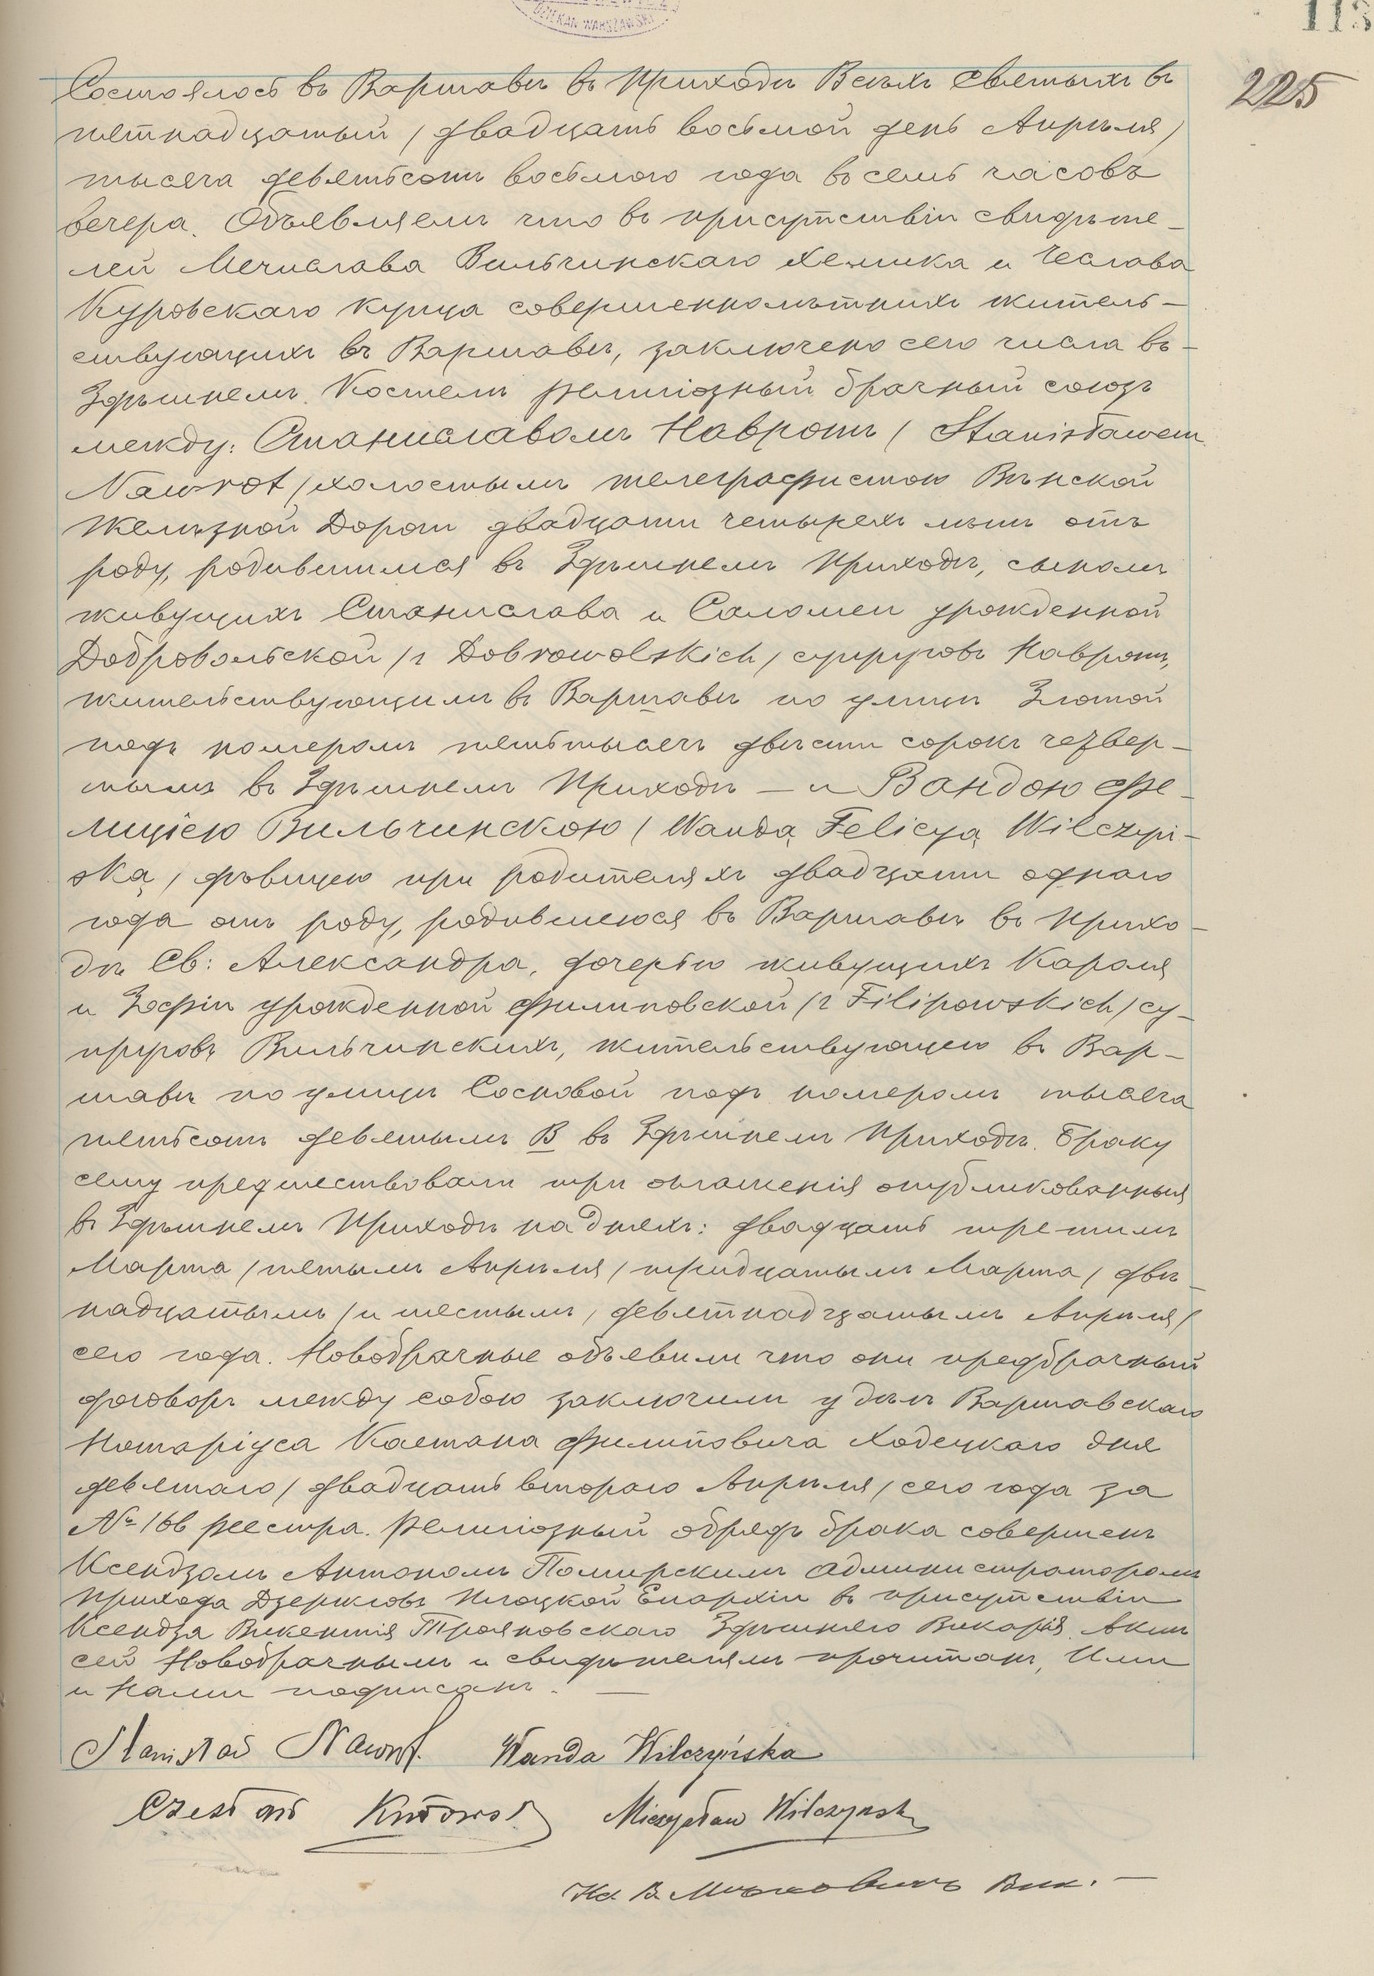 DZIEKAN WARSZAWSKI
113
225
Состоялось въ Варшавѣ въ Приходѣ Всѣхъ Святыхъ въ
пятнадцатый / двадцать восьмой день Апрѣля /
тысяча девятьсотъ восьмого года въ семь часовъ
вечера. Объявляемъ что въ присутствіи свидѣте-
лей Мечислава Вильчинскаго Химика и Чеслава
Куровскаго купца совершеннолѣтнихъ житель-
ствующихъ въ Варшавѣ, заключено сего числа въ
Здѣшнемъ Костелѣ религіозный брачный союзъ
между: Станиславомъ Навротъ / Stanisławem
Nawrot / холостымъ телеграфистомъ Вѣнской
Желѣзной Дороги двадцати четырехъ лѣтъ отъ
роду, родившимся въ Здѣшнемъ Приходѣ, сыномъ
живущихъ Станислава и Саломеи урожденной
Добровольской / z Dobrowolskich / супруговъ Навротъ,
жительствующимъ въ Варшавѣ по улицѣ Злотой
подъ номеромъ пятьтысячъ двѣсти сорокъ четвер-
тымъ въ Здѣшнемъ Приходѣ — и Вандою Фе-
лиціею Вильчинскою / Wandą Felicyą Wilczyń-
ską / дѣвицею при родителяхъ двадцати одного
года отъ роду, родившеюся въ Варшавѣ въ Прихо-
дѣ Св: Александра, дочерью живущихъ Кароля
и Зофіи урожденной Филиповской / z Filipowskich / су-
пруговъ Вильчинскихъ, жительствующею въ Вар-
шавѣ по улицѣ Сосновой подъ номеромъ тысяча
пятьсотъ девятымъ В въ Здѣшнемъ Приходѣ. Браку
сему предшествовали три оглашенія опубликованныя
въ Здѣшнемъ Приходѣ на дняхъ: двадцать третьимъ
Марта / пятымъ Апрѣля / тридцатымъ Марта / двѣ-
надцатымъ / и шестымъ / девятнадцатымъ Апрѣля /
сего года. Новобрачные объявили что они предбрачный
договоръ между собою заключили у дѣлъ Варшавскаго
Нотаріуса Каетана Филиповича Ходецкаго дня
девятаго / двадцать второго Апрѣля / сего года за
№ 166 реестра. Религіозный обрядъ брака совершенъ
Ксендзомъ Антономъ Помирскимъ Администраторомъ
Прихода Плоцкой Епархіи въ присутствіи
Ксендза Викентія Трояновскаго Здѣшняго Викарія. Актъ
сей Новобрачнымъ и свидѣтелямъ прочитанъ, Ими
и Нами подписанъ. —
Stanisław Nawrot. Wanda Wilczyńska
Czesław Mieczysław Wilczyński
Кс. В. Вик. —